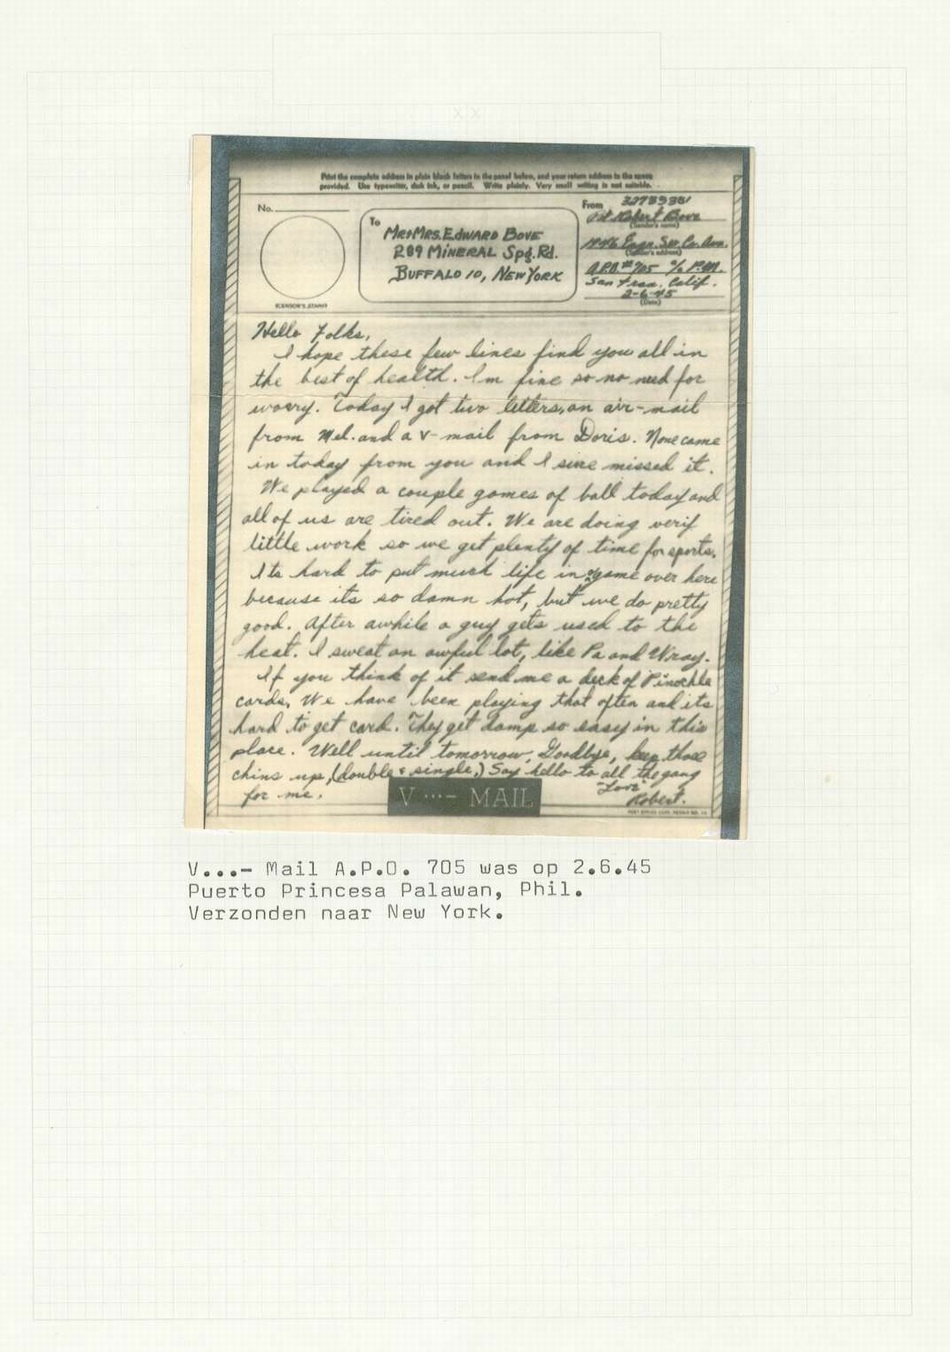 Print the complete address in plain block letters in the panel below, and your return address in the space
provided. Use typewriter, dark ink, or pencil. Write plainly. Very small writing is not suitable.
No.
To
Mr & Mrs. Edward Bove
289 Mineral Spg. Rd.
Buffalo 10, New York
From
Pvt Robert Bove
(Sender's name)
Engr. Co. Avn.
(Sender's address)
A.P.O. #705 c/o P.M.
San Fran. Calif.
2-6-45
(Date)
(CENSOR'S STAMP)
Hello Folks,
I hope these few lines find you all in
the best of health. I'm fine so no need for
worry. Today I got two letters, an air-mail
from Mel. and a V-mail from Doris. None came
in today from you and I sure missed it.
We played a couple games of ball today and
all of us are tired out. We are doing very
little work so we get plenty of time for sports.
Its hard to put much life in game over here
because its so damn hot, but we do pretty
good. After awhile a guy gets used to the
heat. I sweat an awful lot, like Pa and Wray.
If you think of it send me a deck of Pinochle
cards. We have been playing that often and its
hard to get card. They get damp so easy in this
place. Well until tomorrow, Goodbye, keep those
chins up, (double & single,) Say hello to all the gang
for me.
"Love"
Robert.
V ...- MAIL
V...- Mail A.P.O. 705 was op 2.6.45
Puerto Princesa Palawan, Phil.
Verzonden naar New York.